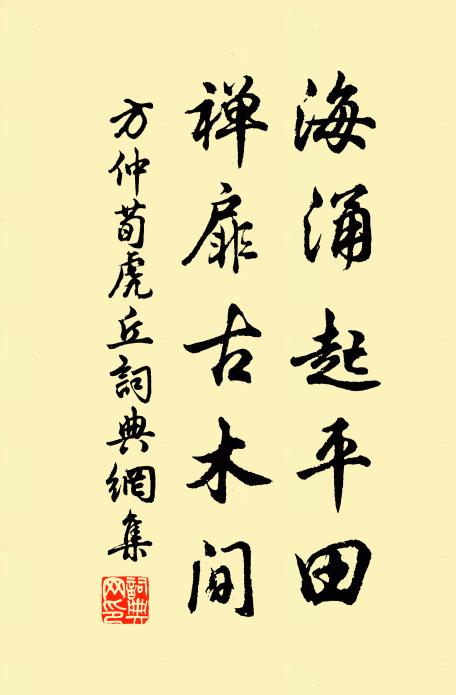 海涌起平田
禅扉古木间
方仲荀虎丘詞典網集
詞典网印